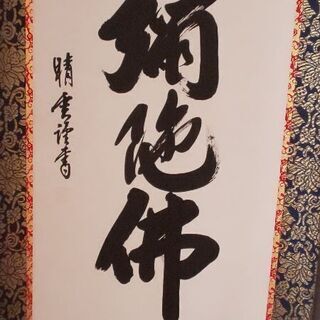 彌陀佛
晴雲謹書